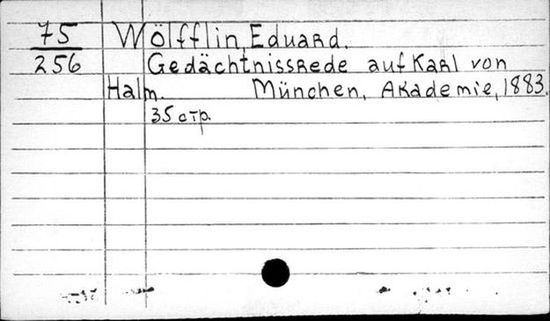 75 Wölfflin, Eduard.
256 Gedächtnissrede auf Karl von
Halm. München, Akademie, 1883.
35 стр.